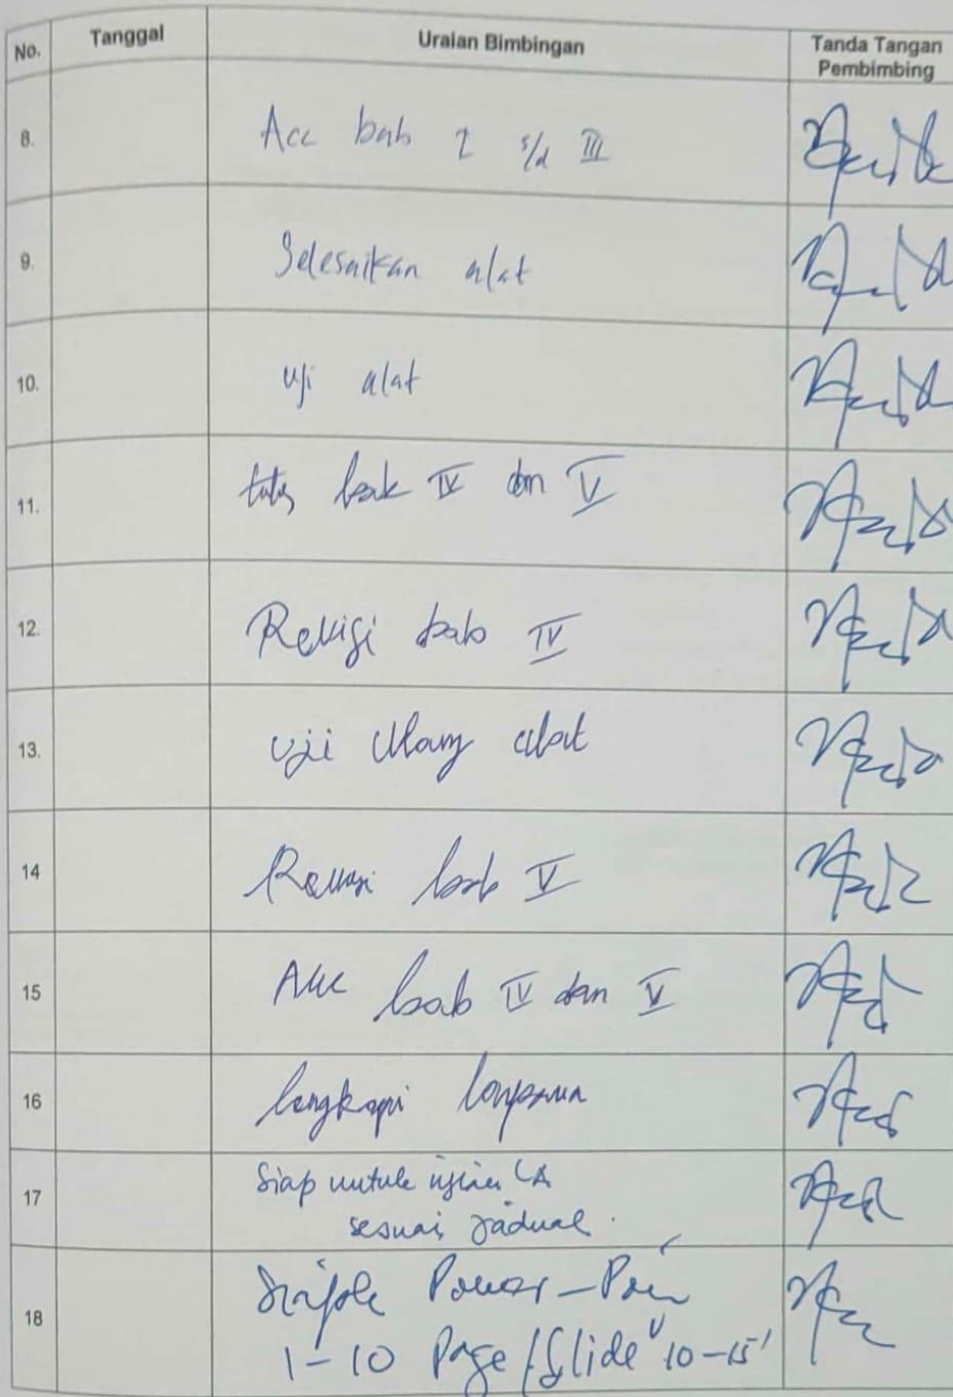 No. Tanggal Uraian Bimbingan Tanda Tangan
Pembimbing
8. Acc bab I s/d III
9. Selesaikan alat
10. Uji alat
11. bab IV dan V
12. Revisi bab IV
13. Uji Ulang alat
14 Revisi bab V
15 Acc bab IV dan V
16 lengkapi lampiran
17 Siap untuk ujian LA
sesuai jadual.
18 Power-Poin
1-10 Page/Slide 10-15'